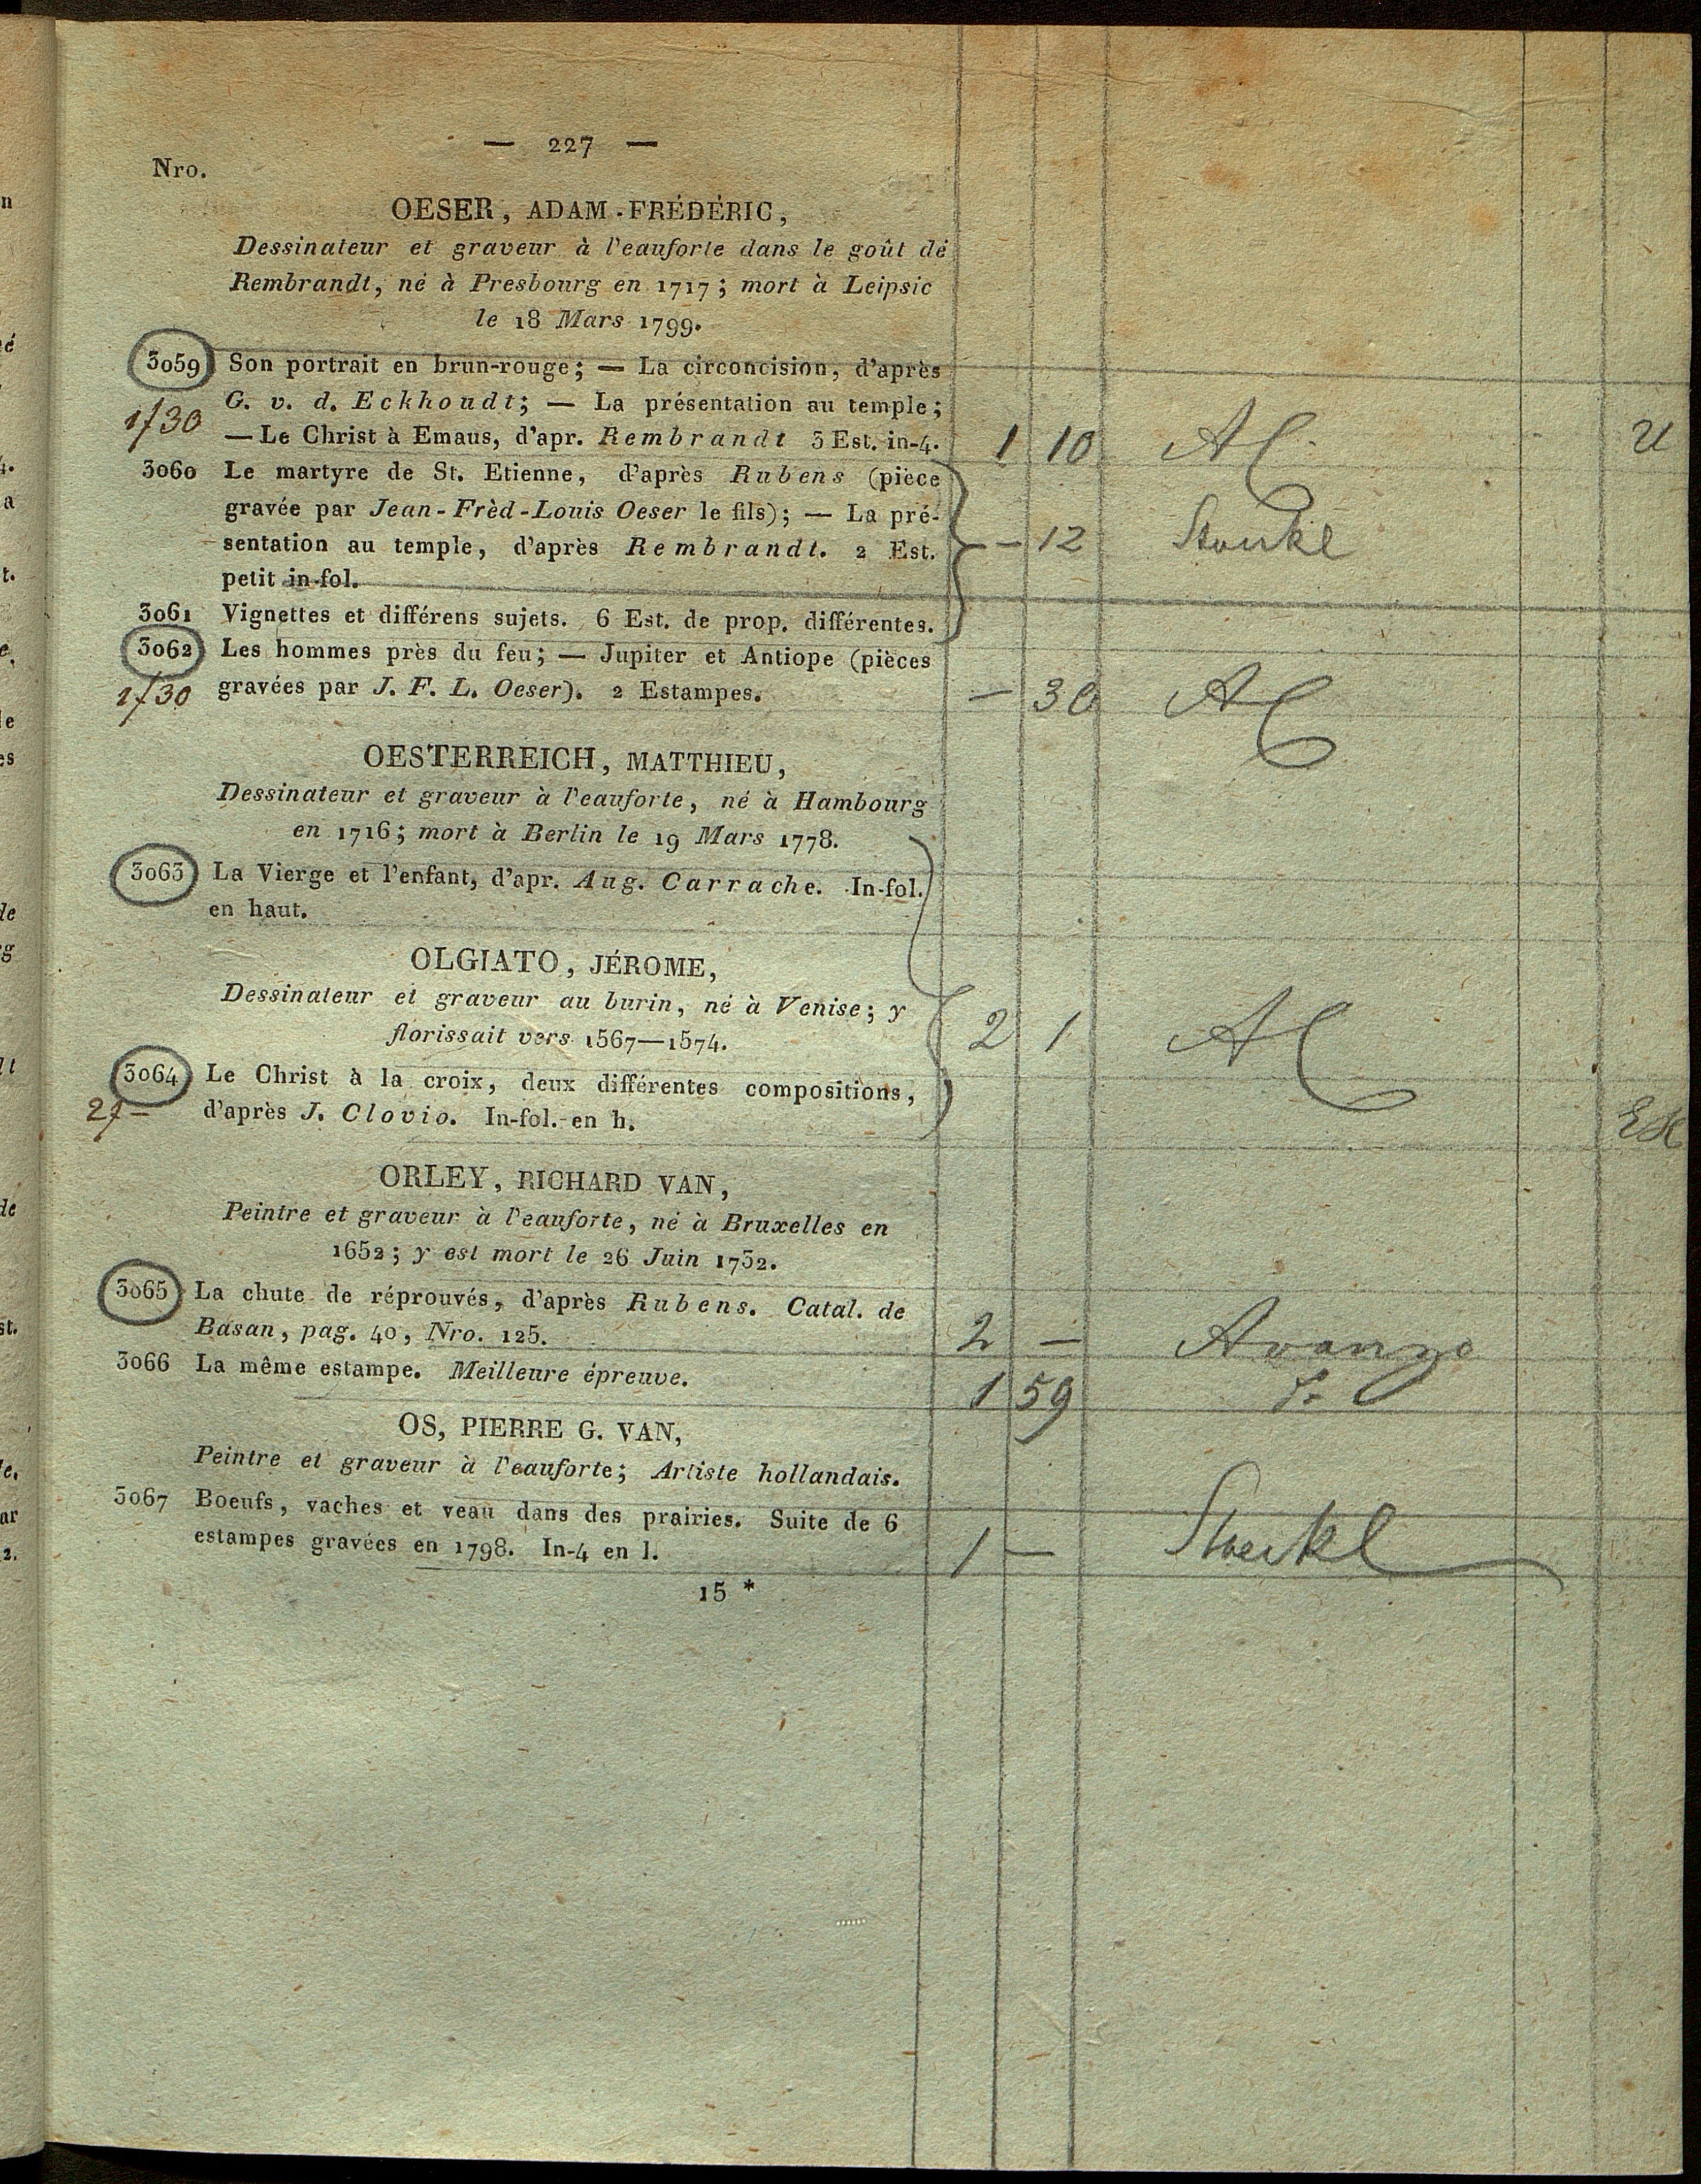 — 227 —
Nro.
OESER, ADAM-FRÉDÉRIC,
Dessinateur et graveur à l'eauforte dans le goût de
Rembrandt, né à Presbourg en 1717; mort à Leipsic
le 18 Mars 1799.
3059 Son portrait en brun-rouge; — La circoncision, d'après
G. v. d. Eckhoudt; — La présentation au temple;
1f30
— Le Christ à Emaus, d'apr. Rembrandt 3 Est. in-4. 1 10 AC
3060 Le martyre de St. Etienne, d'après Rubens (pièce
gravée par Jean-Frèd-Louis Oeser le fils); — La pré-
sentation au temple, d'après Rembrandt. 2 Est. — 12
petit in-fol.
3061 Vignettes et différens sujets. 6 Est. de prop. différentes.
3062 Les hommes près du feu; — Jupiter et Antiope (pièces
1f30 gravées par J. F. L. Oeser). 2 Estampes. — 30 AC
OESTERREICH, MATTHIEU,
Dessinateur et graveur à l'eauforte, né à Hambourg
en 1716; mort à Berlin le 19 Mars 1778.
3063 La Vierge et l'enfant, d'apr. Aug. Carrache. In-fol.
en haut.
OLGIATO, JÉROME,
Dessinateur et graveur au burin, né à Venise; y
florissait vers 1567—1574. 2 1 AC
3064 Le Christ à la croix, deux différentes compositions,
2f— d'après J. Clovio. In-fol. en h.
ORLEY, RICHARD VAN,
Peintre et graveur à l'eauforte, né à Bruxelles en
1652; y est mort le 26 Juin 1732.
3065 La chute de réprouvés, d'après Rubens. Catal. de
Basan, pag. 40, Nro. 125. 2 — Avanzo
3066 La même estampe. Meilleure épreuve. 1 59
OS, PIERRE G. VAN,
Peintre et graveur à l'eauforte; Artiste hollandais.
3067 Boeufs, vaches et veau dans des prairies. Suite de 6
estampes gravées en 1798. In-4 en l. 1 — Stoeckl
15 *